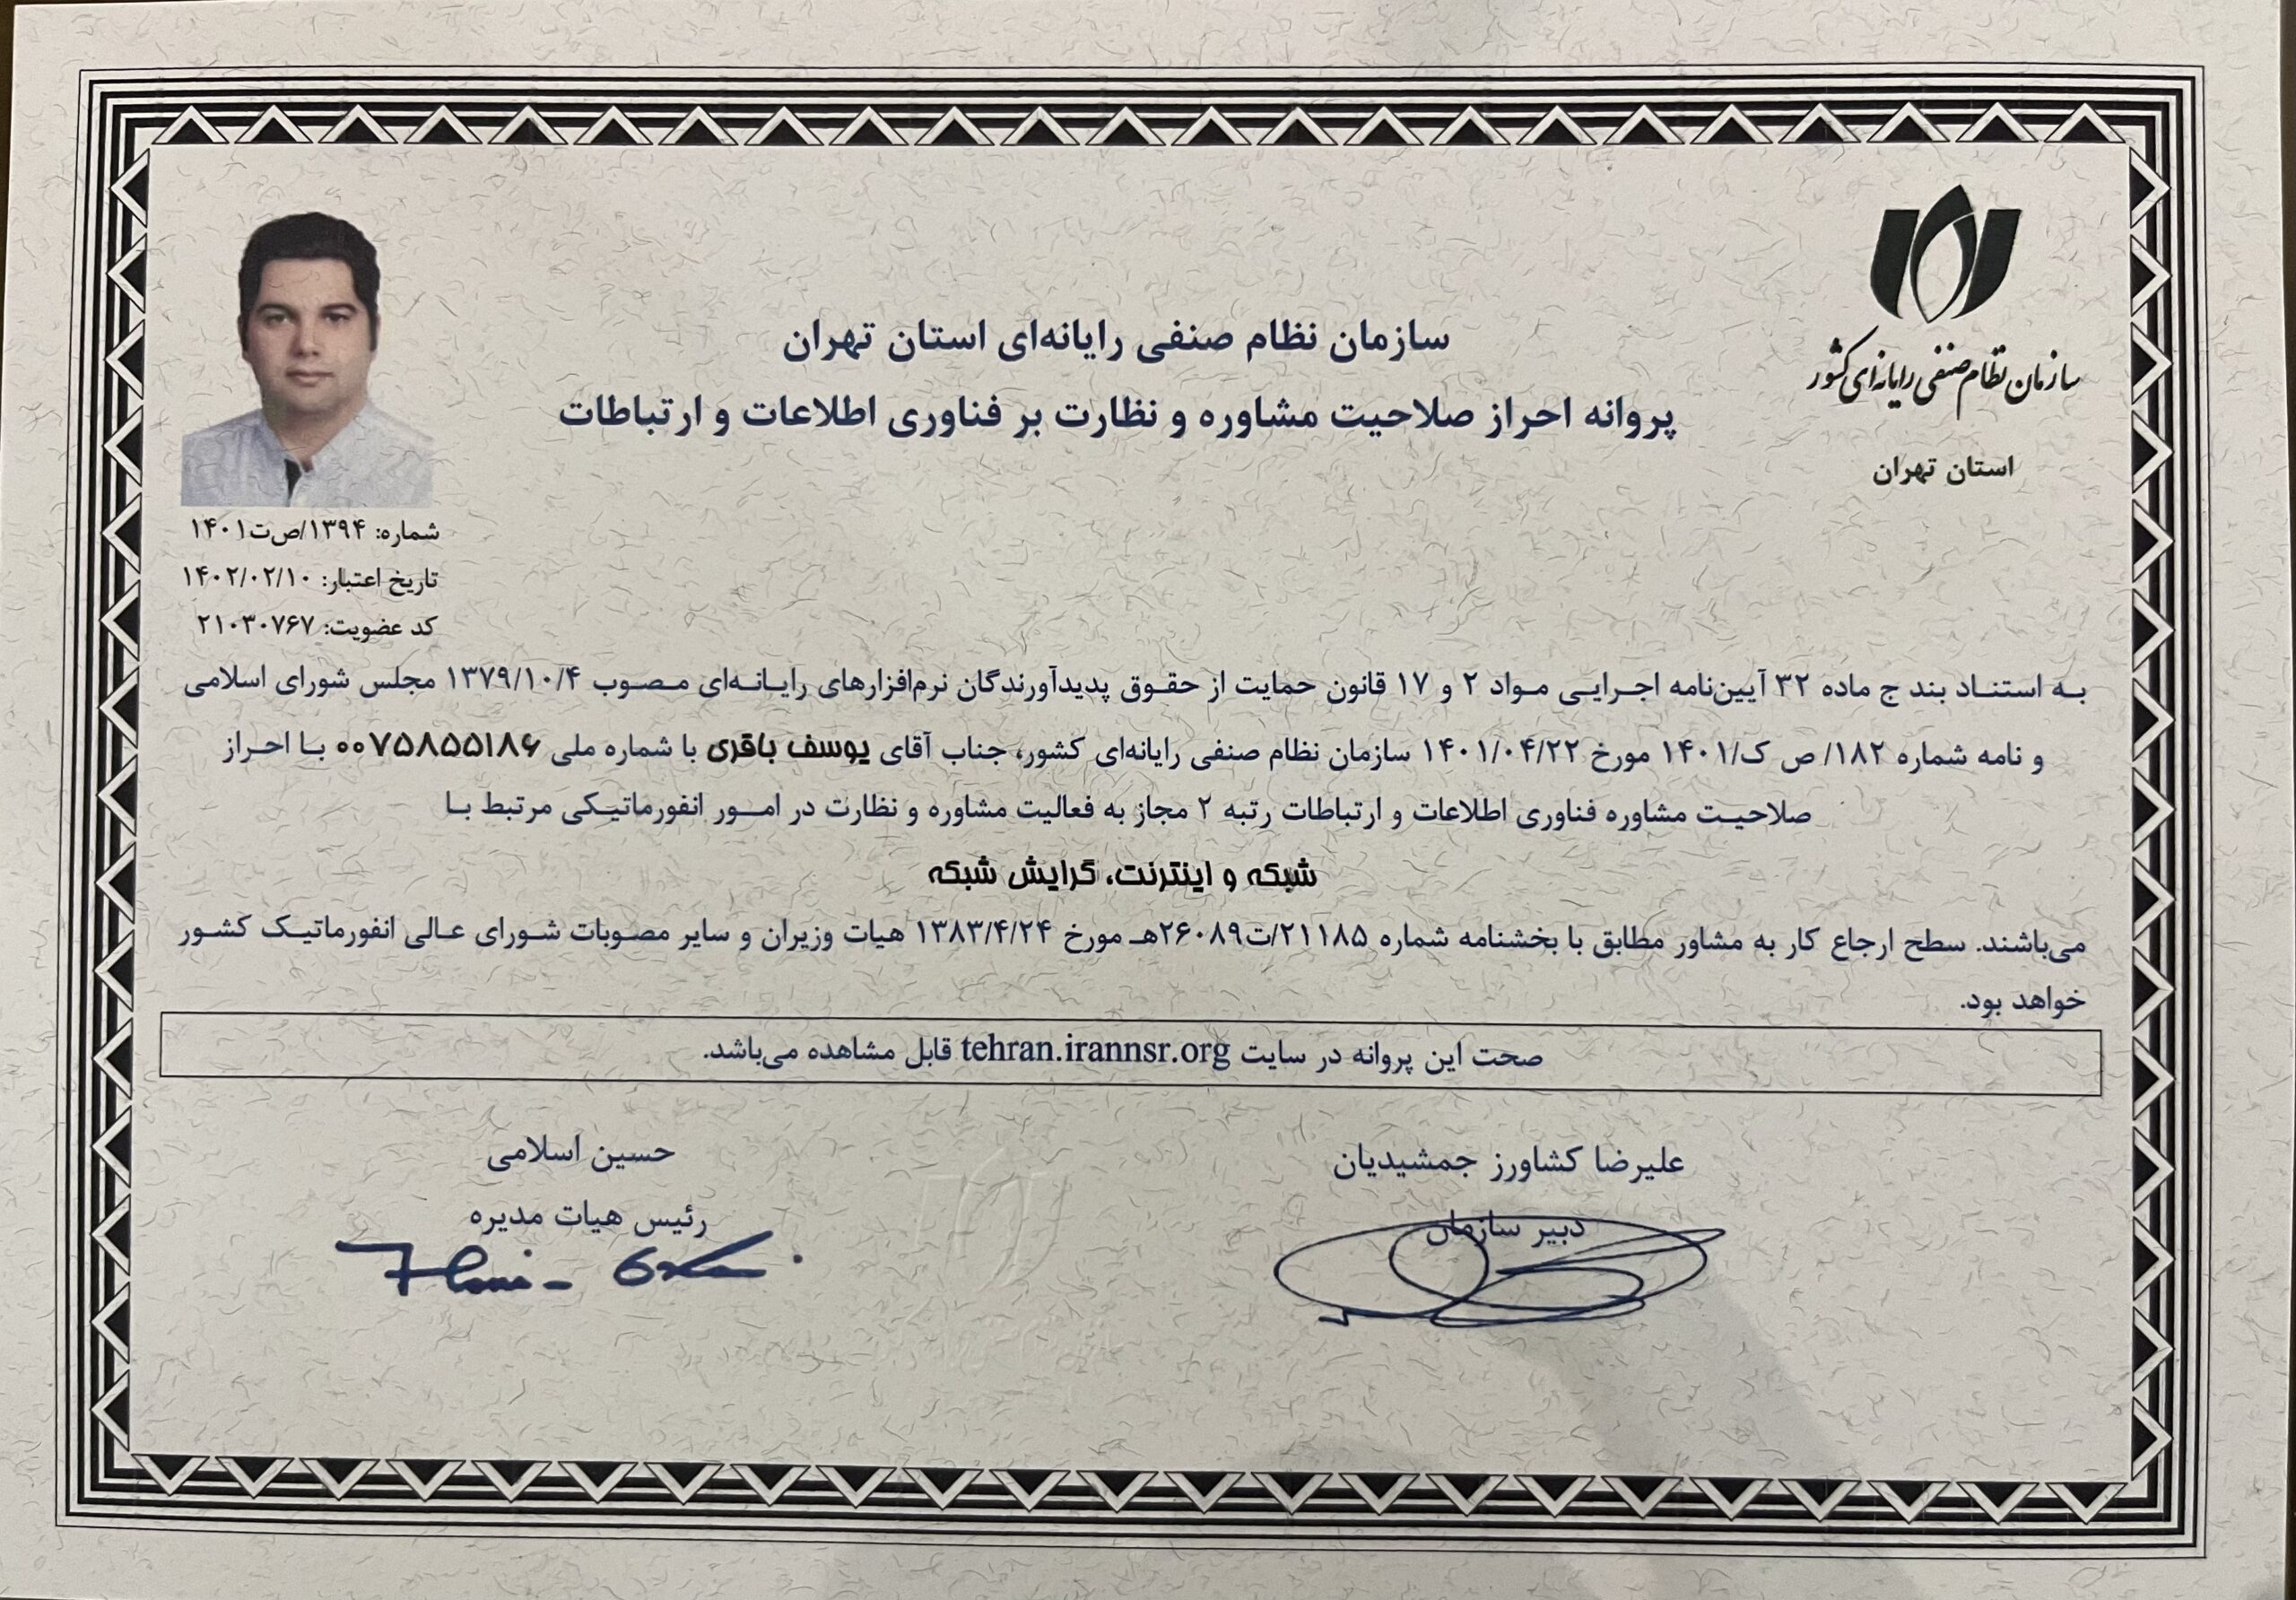 سازمان نظام صنفی رایانه‌ای کشور
استان تهران
سازمان نظام صنفی رایانه‌ای استان تهران
پروانه احراز صلاحیت مشاوره و نظارت بر فناوری اطلاعات و ارتباطات
شماره: ۱۳۹۴/ص‌ت۱۴۰۱
تاریخ اعتبار: ۱۴۰۲/۰۲/۱۰
کد عضویت: ۲۱۰۳۰۷۶۷
به استناد بند ج ماده ۳۲ آیین‌نامه اجرایی مواد ۲ و ۱۷ قانون حمایت از حقوق پدیدآورندگان نرم‌افزارهای رایانه‌ای مصوب ۱۳۷۹/۱۰/۴ مجلس شورای اسلامی
و نامه شماره ۱۸۲/ ص ک/۱۴۰۱ مورخ ۱۴۰۱/۰۴/۲۲ سازمان نظام صنفی رایانه‌ای کشور، جناب آقای یوسف باقری با شماره ملی ۰۰۷۵۸۵۵۱۸۶ با احراز
صلاحیت مشاوره فناوری اطلاعات و ارتباطات رتبه ۲ مجاز به فعالیت مشاوره و نظارت در امور انفورماتیکی مرتبط با
شبکه و اینترنت، گرایش شبکه
می‌باشند. سطح ارجاع کار به مشاور مطابق با بخشنامه شماره ۲۱۱۸۵/ت۲۶۰۸۹هـ مورخ ۱۳۸۳/۴/۲۴ هیات وزیران و سایر مصوبات شورای عالی انفورماتیک کشور
خواهد بود.
صحت این پروانه در سایت tehran.irannsr.org قابل مشاهده می‌باشد.
علیرضا کشاورز جمشیدیان
دبیر سازمان
حسین اسلامی
رئیس هیات مدیره